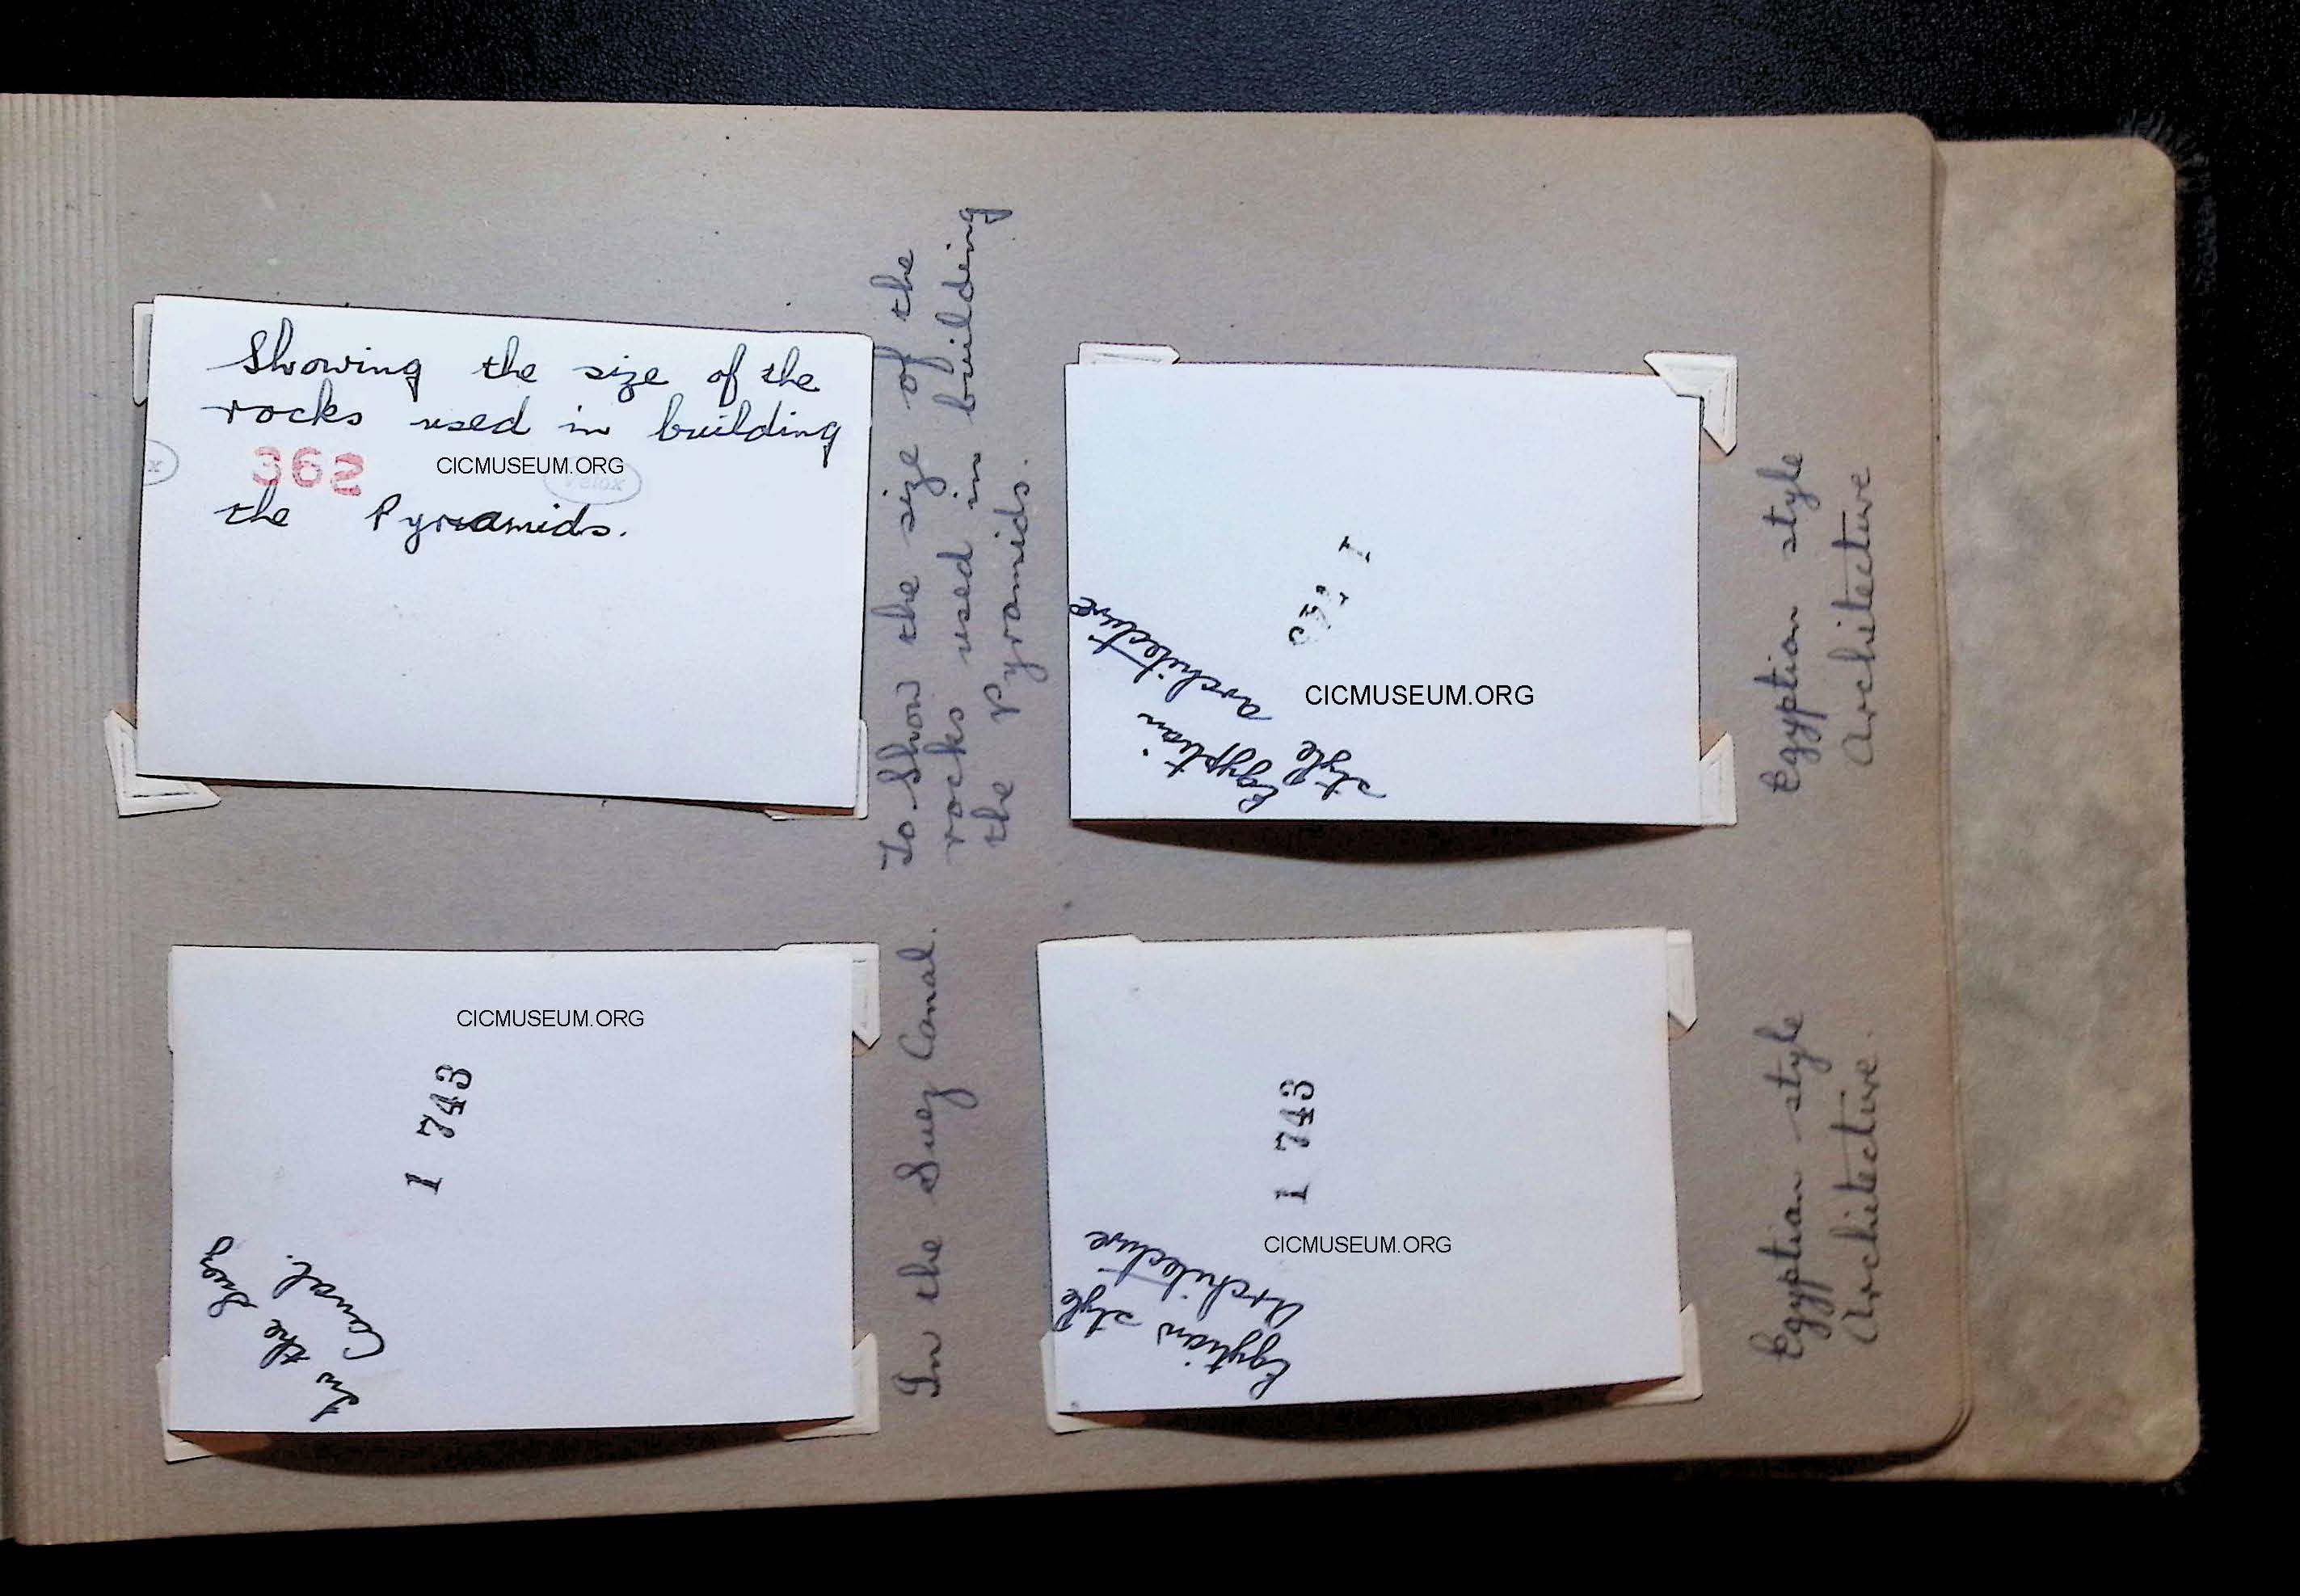 Showing the size of the
rocks used in building
362
CICMUSEUM.ORG
Velox
the Pyramids.
To Show the size of the
rocks used in building
the Pyramids.
Egyptian
style Architecture
CICMUSEUM.ORG
Egyption style
Architecture
CICMUSEUM.ORG
1 743
In the Suez
Canal.
In the Suez Canal.
1 743
CICMUSEUM.ORG
Egyptian style
Architecture
Egyptian style
Architecture.